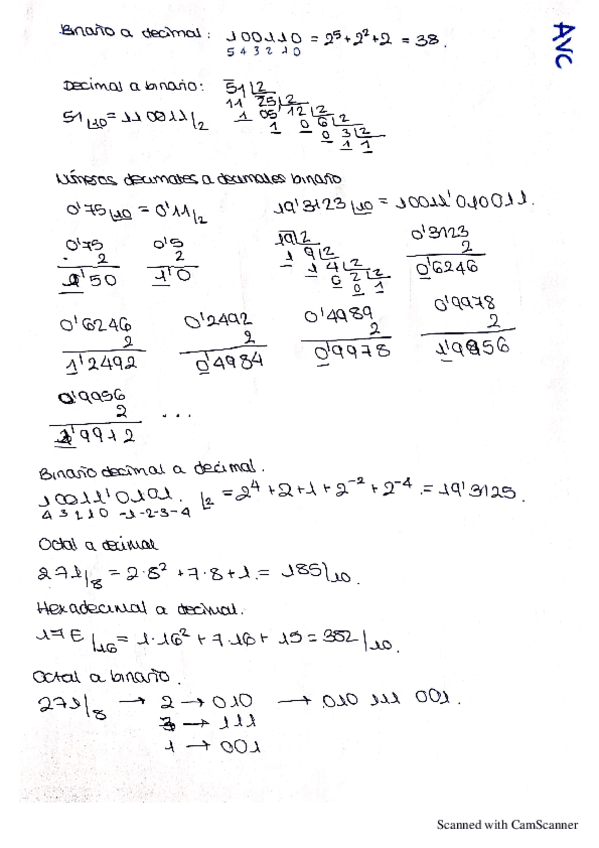 Binario a decimal: 100110 = 2⁵+2²+2 = 38.
5 4 3 2 1 0
AVC
Decimal a binario: 51 |2
11 25 |2
1 05 12 |2
1 0 6 |2
0 3 |2
1 1
51/10 = 110011/2
Números decimales a decimales binario
0'75/10 = 0'11/2
19'3123/10 = 10011'010011.
0'75
2
1'50
0'5
2
1'0
19 |2
1 9 |2
1 4 |2
0 2 |2
0 1
0'3123
2
0'6246
0'6246
2
1'2492
0'2492
2
0'4984
0'4989
2
0'9978
0'9978
2
1'9956
0'9956
2
1'9912
...
Binario decimal a decimal.
10011'0101./2 = 2⁴+2+1+2⁻²+2⁻⁴ = 19'3125.
4 3 2 1 0 -1-2-3-4
Octal a decimal
271/8 = 2·8²+7·8+1 = 185/10.
Hexadecimal a decimal.
17E/16 = 1·16²+7·16+15 = 382/10.
Octal a binario.
271/8 → 2 → 010 → 010 111 001.
7 → 111
1 → 001
Scanned with CamScanner